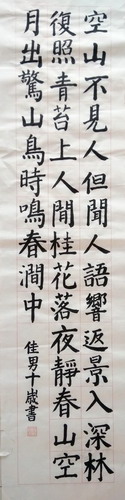 空山不見人但聞人語響返景入深林
復照青苔上人間桂花落夜靜春山空
月出驚山鳥時鳴春澗中
佳男十歲書